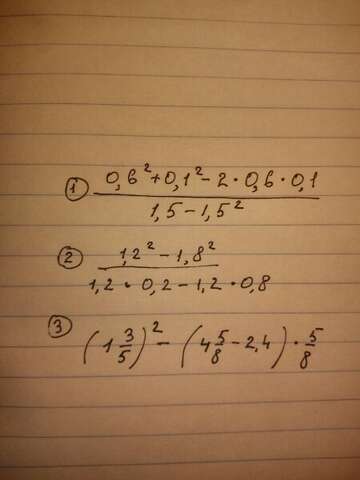 1) 0,6² + 0,1² - 2 · 0,6 · 0,1
1,5 - 1,5²
2) 1,2² - 1,8²
1,2 · 0,2 - 1,2 · 0,8
3) (1 3/5)² - (4 5/8 - 2,4) · 5/8